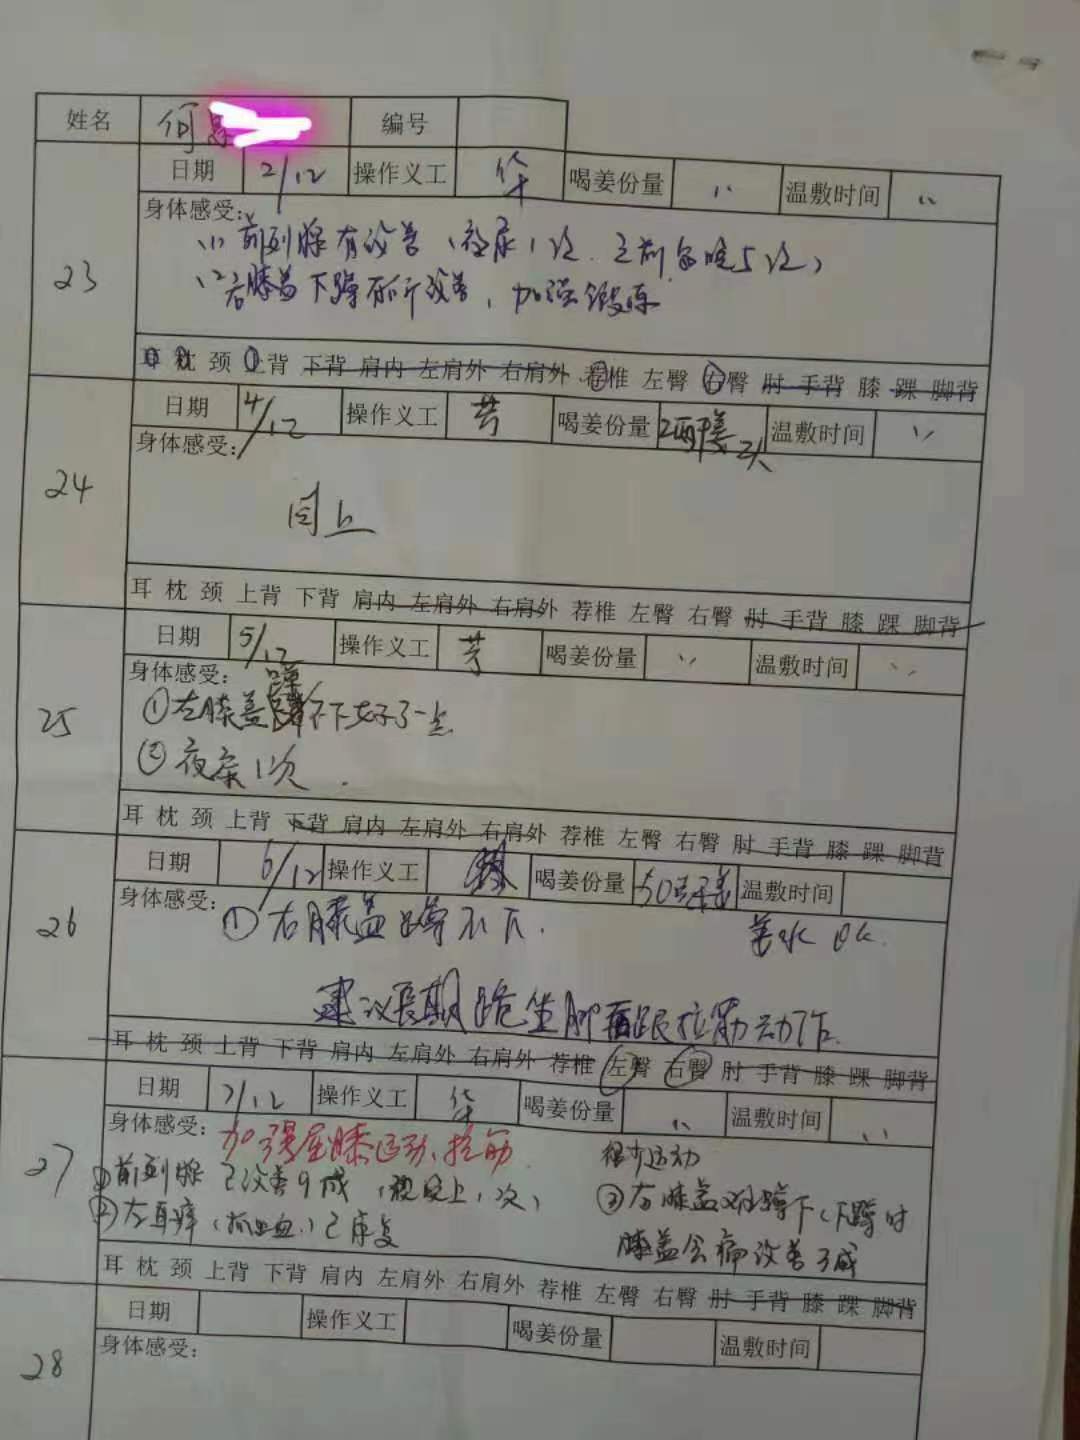 姓名 何 编号
23
日期 2/12 操作义工 华 喝姜份量 〃 温敷时间 〃
身体感受:
(1) 前列腺有改善(夜尿1次.之前每晚5次)
(2) 右膝盖下蹲有所改善,加强锻炼
耳 枕 颈 上背 下背 肩内 左肩外 右肩外 荐椎 左臀 右臀 肘 手背 膝 踝 脚背
24
日期 4/12 操作义工 芳 喝姜份量 温敷时间 〃
身体感受:
同上
耳 枕 颈 上背 下背 肩内 左肩外 右肩外 荐椎 左臀 右臀 肘 手背 膝 踝 脚背
25
日期 5/12 操作义工 芳 喝姜份量 〃 温敷时间 〃
身体感受:
①左膝盖蹲不下好了一点
②夜尿1次.
耳 枕 颈 上背 下背 肩内 左肩外 右肩外 荐椎 左臀 右臀 肘 手背 膝 踝 脚背
26
日期 6/12 操作义工 喝姜份量 50克 温敷时间
身体感受:
①右膝盖蹲不下. 姜水 OK.
建议长期跪坐脚跟拉筋动作.
耳 枕 颈 上背 下背 肩内 左肩外 右肩外 荐椎 左臀 右臀 肘 手背 膝 踝 脚背
27
日期 7/12 操作义工 华 喝姜份量 〃 温敷时间 〃
身体感受: 加强屈膝运动、拉筋 很少运动
①前列腺已改善9成(夜晚上1次) ③右膝盖难蹲下(下蹲时
②左耳痒(抓出血)已康复 膝盖会痛改善3成
耳 枕 颈 上背 下背 肩内 左肩外 右肩外 荐椎 左臀 右臀 肘 手背 膝 踝 脚背
28
日期 操作义工 喝姜份量 温敷时间
身体感受: